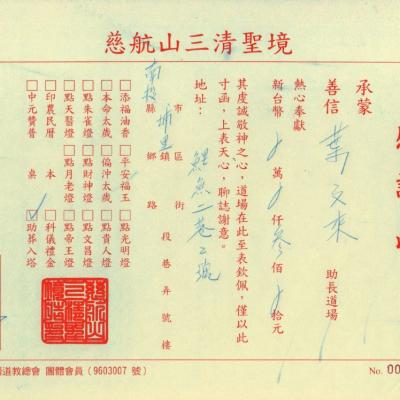 慈航山三清聖境
承蒙
善信 葉文來 助長道場
熱心奉獻
新台幣 萬 仟 叁 佰 拾元
其虔誠敬神之心，道場在此至表欽佩，僅以此
寸函，上表天心，聊誌謝意。
地址：南投縣市 埔里鄉鎮區 路街 鯉魚二巷2號 段巷弄號樓
□添福油香 □平安福玉 □點光明燈
□本命太歲 □偏沖太歲 □點貴人燈
□點朱雀燈 □點財神燈 □點文昌燈
□點天醫燈 □點月老燈 □點帝王燈
□印農民曆 本 □科儀禮金
□中元贊普 桌 □助葬入塔
道教總會 團體會員（9603007 號）
No. 00